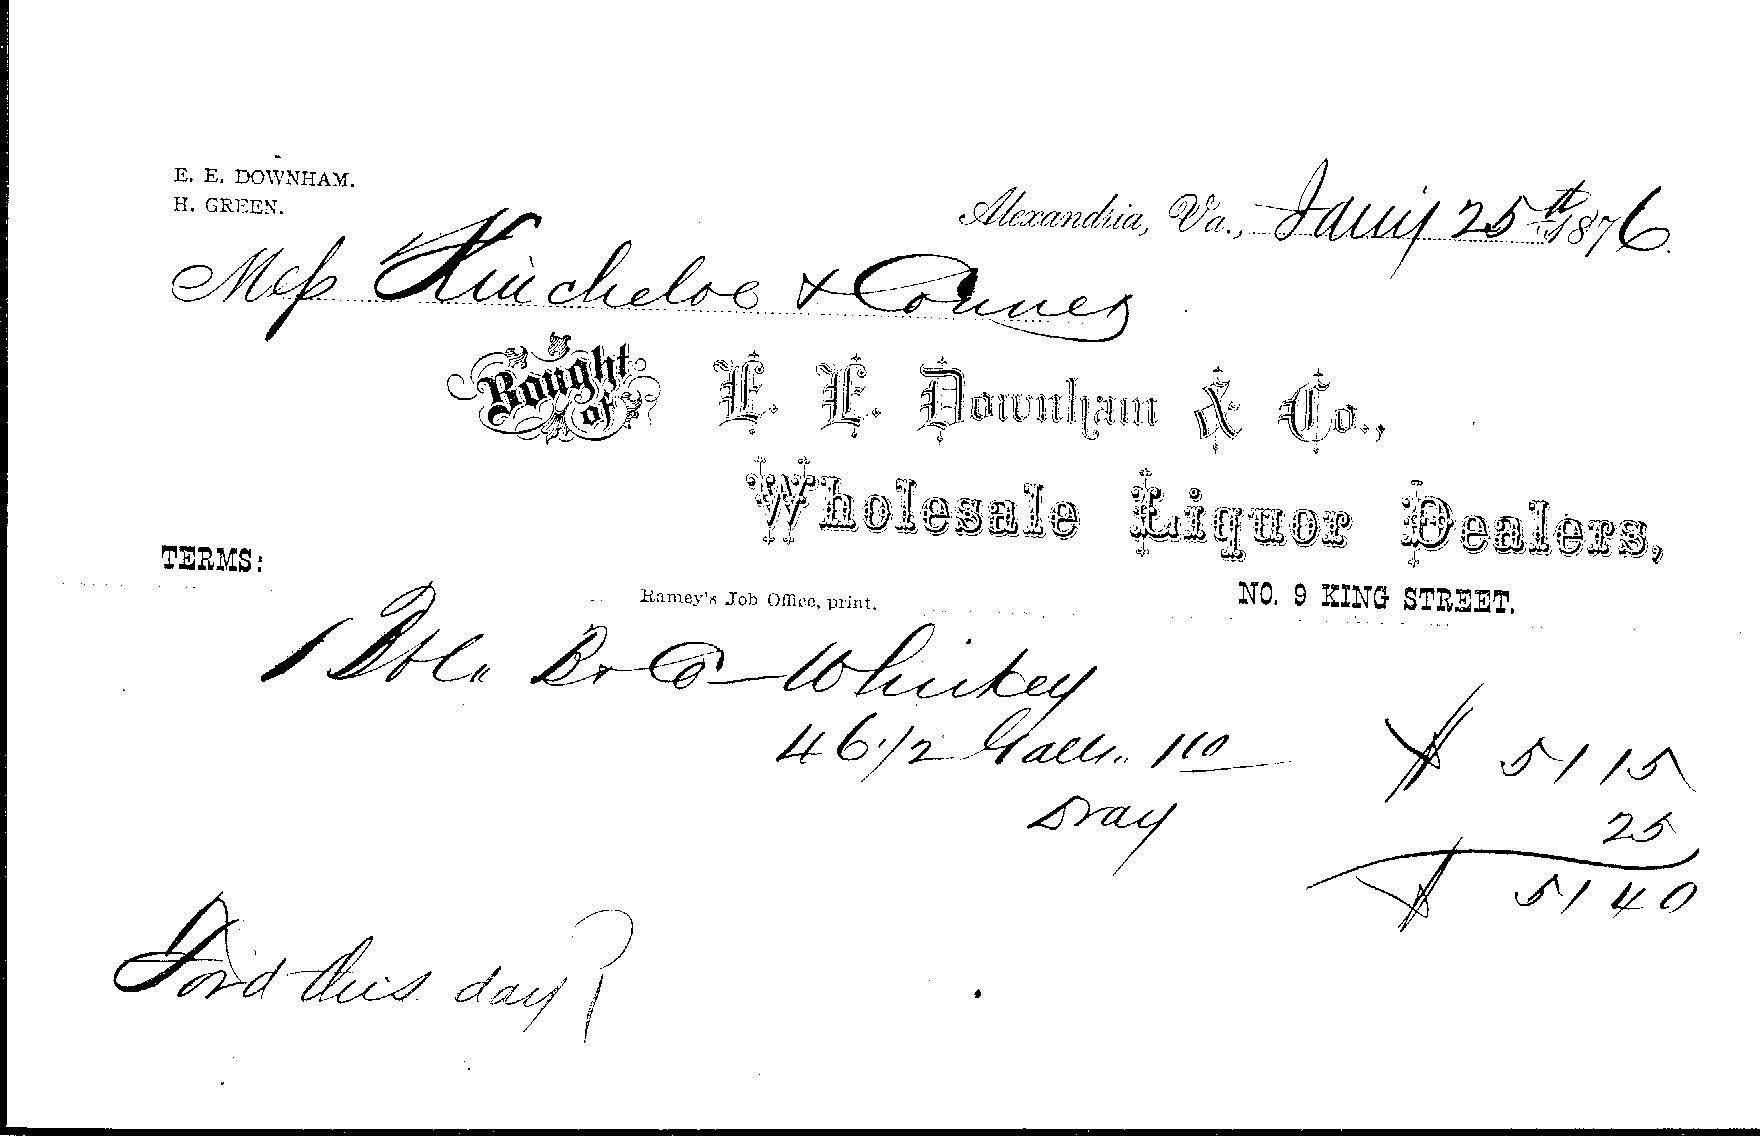 E. E. DOWNHAM.
H. GREEN.
Alexandria, Va., Jany 25th 1876.
Mess Kincheloe & Conner
Bought of E. E. Downham & Co.,
Wholesale Liquor Dealers,
TERMS:
Ramey's Job Office, print.
NO. 9 KING STREET.
1 Bbl. Whiskey
46 1/2 Galls. 1 10 $ 51 15
Dray 25
$ 51 40
Ford this day